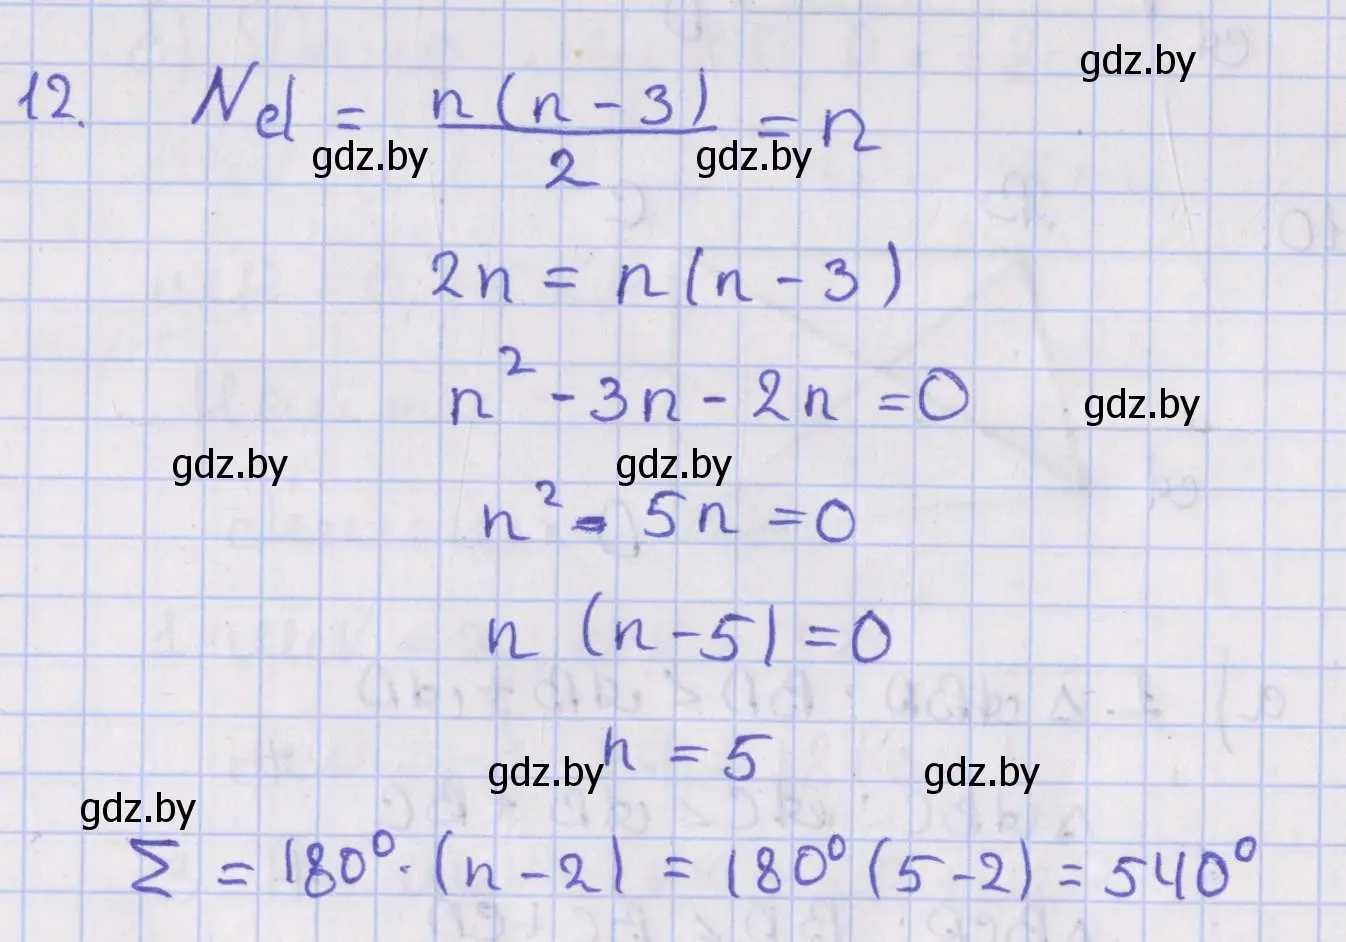 12. Nd = n(n - 3) / 2 = n
2n = n(n - 3)
n² - 3n - 2n = 0
n² - 5n = 0
n (n - 5) = 0
n = 5
Σ = 180° · (n - 2) = 180° (5 - 2) = 540°
gdz.by
gdz.by
gdz.by
gdz.by
gdz.by
gdz.by
gdz.by
gdz.by
gdz.by